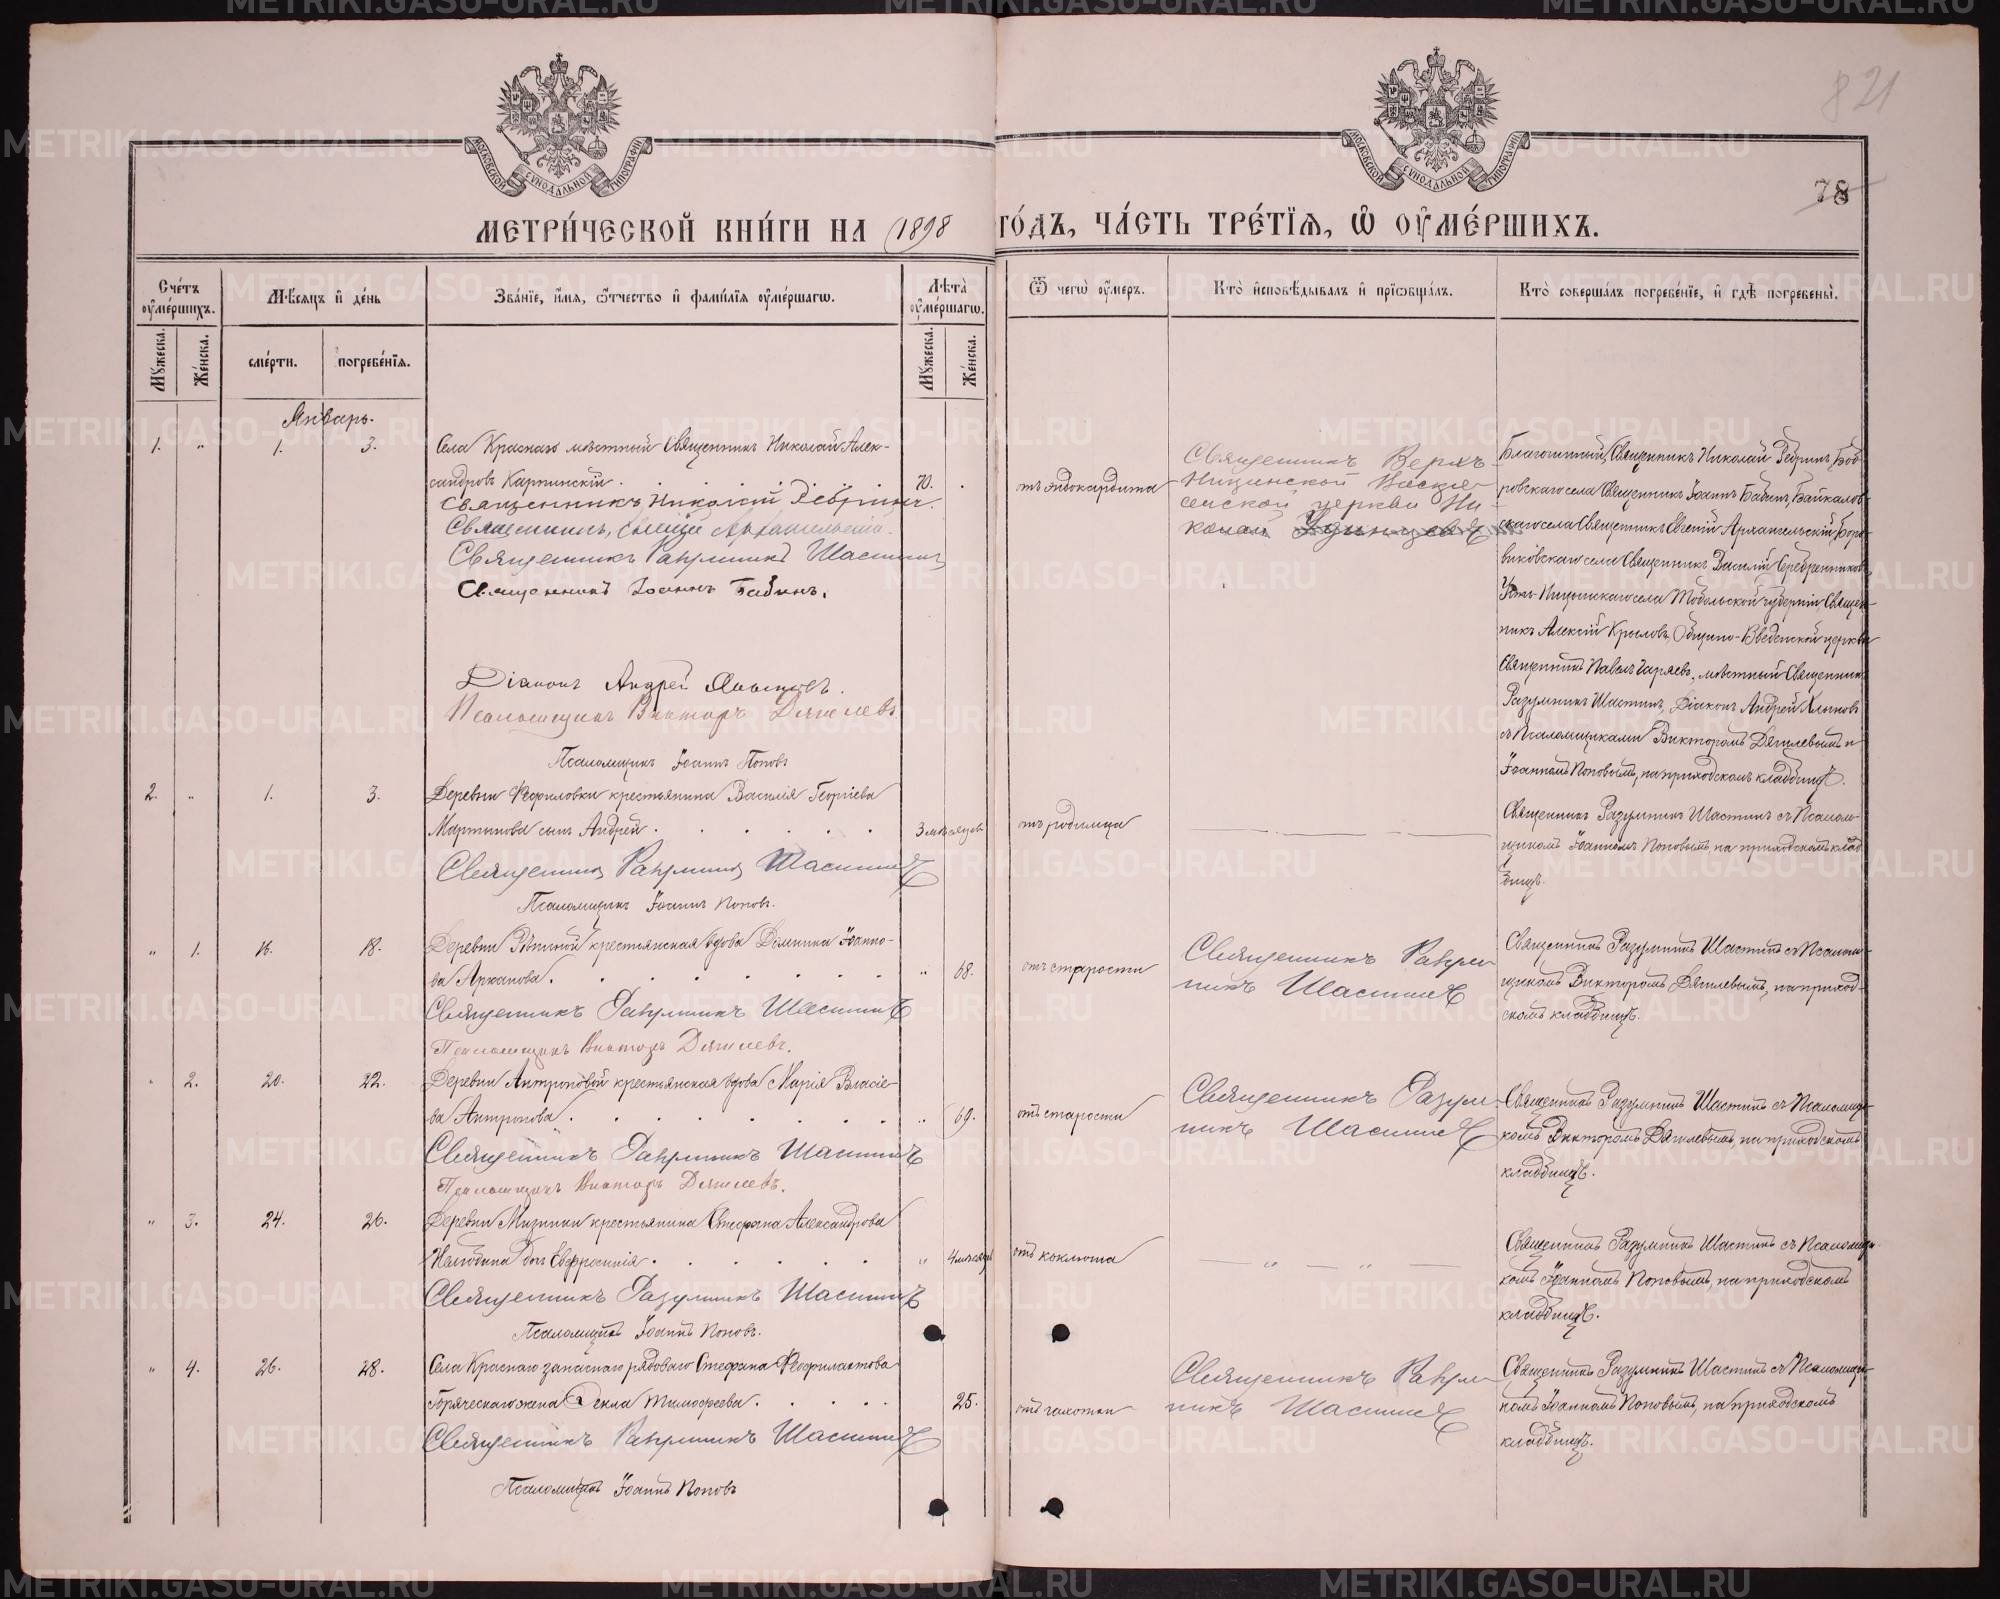 821
78
МОСКОВСКОЙ СѴНОДАЛЬНОЙ ТИПОГРАФІИ
МОСКОВСКОЙ СѴНОДАЛЬНОЙ ТИПОГРАФІИ
МЕТРИ́ЧЕСКОЙ КНИ́ГИ НА 1898 ГО́ДЪ, ЧА́СТЬ ТРЕ́ТІЯ, Ѡ ОУМЕ́РШИХЪ.
Сче́тъ оуме́ршихъ.
Мѣсяцъ и де́нь
Зва́ніе, и́мя, ѻ́тчество и фами́лія оуме́ршагѡ.
Лѣта̀ оуме́ршагѡ.
Ѿ чегѡ̀ оу́меръ.
Кто̀ исповѣ́дывалъ и пріѡбща́лъ.
Кто̀ соверша́лъ погребе́ніе, и гдѣ̀ погребены̀.
Мꙋ́жеска.
Же́нска.
сме́рти.
погребе́нія.
Мꙋ́жеска.
Же́нска.
Январь.
1. „ 1. 3.
Села Краснаго мѣстный Священникъ Николай Алек-
сандровъ Карпинскій . . . . . 70.
Священникъ Николай Ребринъ.
Священникъ Евгеній Архангельскій.
Священникъ Разумникъ Шастинъ
Священникъ Іоаннъ Бабинъ.
Діаконъ Андрей Хлыновъ.
Псаломщикъ Викторъ Дягилевъ
Псаломщикъ Іоаннъ Поповъ
отъ эндокардита
Священникъ Верхъ-
Ницинской Воскре-
сенской церкви Ни-
колай Удинцевъ
Благочинный, Священникъ Николай Ребринъ, Боб-
ровскаго села Священникъ Іоаннъ Бабинъ, Байкалов-
скаго села Священникъ Евгеній Архангельскій,
виковскаго села Священникъ Василій Серебренниковъ,
Усть-Ницынскаго села Тобольской губерніи Священ-
никъ Алексій Крыловъ, Общино-Введенской церкви
Священникъ Павелъ Гаряевъ, мѣстный Священникъ
Разумникъ Шастинъ, Діаконъ Андрей Хлыновъ
съ Псаломщиками Викторомъ Дягилевымъ и
Іоанномъ Поповымъ, на приходскомъ кладбищѣ.
2. „ 1. 3.
Деревни Фефиловки крестьянина Василія Георгіева
Мартынова сынъ Андрей . . . . . 3 мѣсяцевъ
Священникъ Разумникъ Шастинъ
Псаломщикъ Іоаннъ Поповъ.
отъ родимца
Священникъ Разумникъ Шастинъ съ Псалом-
щикомъ Іоанномъ Поповымъ, на приходскомъ клад-
бищѣ.
„ 1. 16. 18.
Деревни Рѣпиной крестьянская вдова Домника Іоанно-
ва Аржанова . . . . . „ 68.
Священникъ Разумникъ Шастинъ
Псаломщикъ Викторъ Дягилевъ.
отъ старости
Священникъ Разум-
никъ Шастинъ
Священникъ Разумникъ Шастинъ съ Псалом-
щикомъ Викторомъ Дягилевымъ, на приход-
скомъ кладбищѣ.
„ 2. 20. 22.
Деревни Антроповой крестьянская вдова Марія Власіе-
ва Антропова . . . . . „ 69.
Священникъ Разумникъ Шастинъ
Псаломщикъ Викторъ Дягилевъ.
отъ старости
Священникъ Разум-
никъ Шастинъ
Священникъ Разумникъ Шастинъ съ Псаломщи-
комъ Викторомъ Дягилевымъ, на приходскомъ
кладбищѣ.
„ 3. 24. 26.
Деревни Мизинки крестьянина Стефана Александрова
Налобина дочь Евфросинія . . . . . „ 4 мѣсяцевъ
Священникъ Разумникъ Шастинъ
Псаломщикъ Іоаннъ Поповъ.
отъ коклюша
— „ — „ —
Священникъ Разумникъ Шастинъ съ Псаломщи-
комъ Іоанномъ Поповымъ, на приходскомъ
кладбищѣ.
„ 4. 26. 28.
Села Краснаго запаснаго рядоваго Стефана Феофилактова
Горяческаго жена Фекла Тимофеева . . . . . 25.
Священникъ Разумникъ Шастинъ
Псаломщикъ Іоаннъ Поповъ
отъ чахотки
Священникъ Разум-
никъ Шастинъ
Священникъ Разумникъ Шастинъ съ Псаломщи-
комъ Іоанномъ Поповымъ, на приходскомъ
кладбищѣ.
METRIKI.GASO-URAL.RU